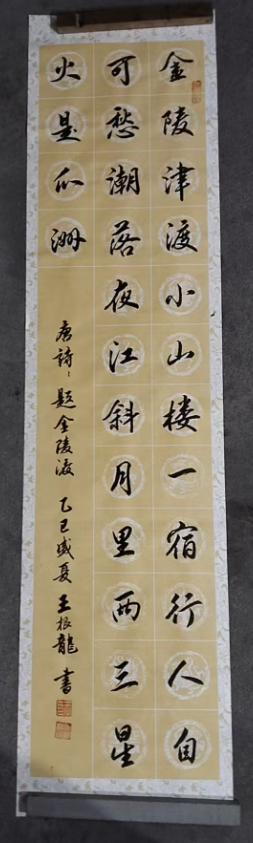 金陵津渡小山楼一宿行人自
可愁潮落夜江斜月里两三星
火是瓜洲
唐诗、题金陵渡 乙巳盛夏 王根龍 書